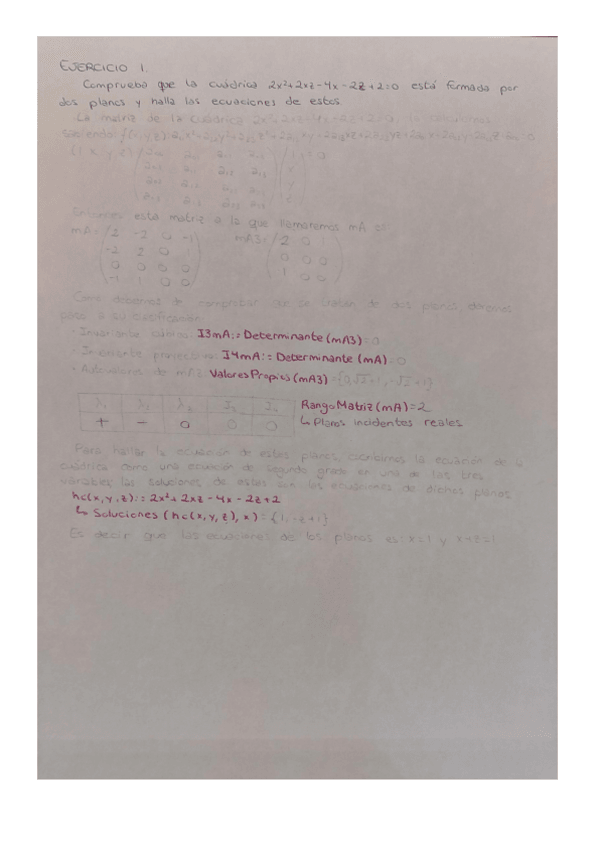 EJERCICIO 1.
Comprueba que la cuádrica 2x²+2xz-4x-2z+2=0 está formada por
dos planos y halla las ecuaciones de estos.
La matriz de la cuádrica 2x²+2xz-4x-2z+2=0, la calculamos
sabiendo:
(1 x y z)
Entonces esta matriz a la que llamaremos mA es
mA= (2 -2 0 -1 mA3= (2 0 1
-2 2 0 1 0 0 0
0 0 0 0 1 0 0)
-1 1 0 0)
Como debemos de comprobar que se tratan de dos planos daremos
paso a su clasificación:
· Invariante cúbico: I3mA:=Determinante(mA3)=0
· Invariante proyectivo: I4mA:=Determinante(mA)=0
· Autovalores de mA3: ValoresPropios(mA3)={0,√2+1,-√2+1}
λ₁ λ₂ λ₃ I₃ I₄ RangoMatriz(mA)=2
+ - 0 0 0 ↳ Planos incidentes reales
Para hallar la ecuación de estos planos, escribimos la ecuación de la
cuádrica como una ecuación de segundo grado en una de las tres
variables las soluciones de estas son las ecuaciones de dichos planos:
hc(x,y,z):=2x²+2xz-4x-2z+2
↳ Soluciones (hc(x,y,z),x)={1,-z+1}
Es decir que las ecuaciones de los planos es: x=1 y x+z=1